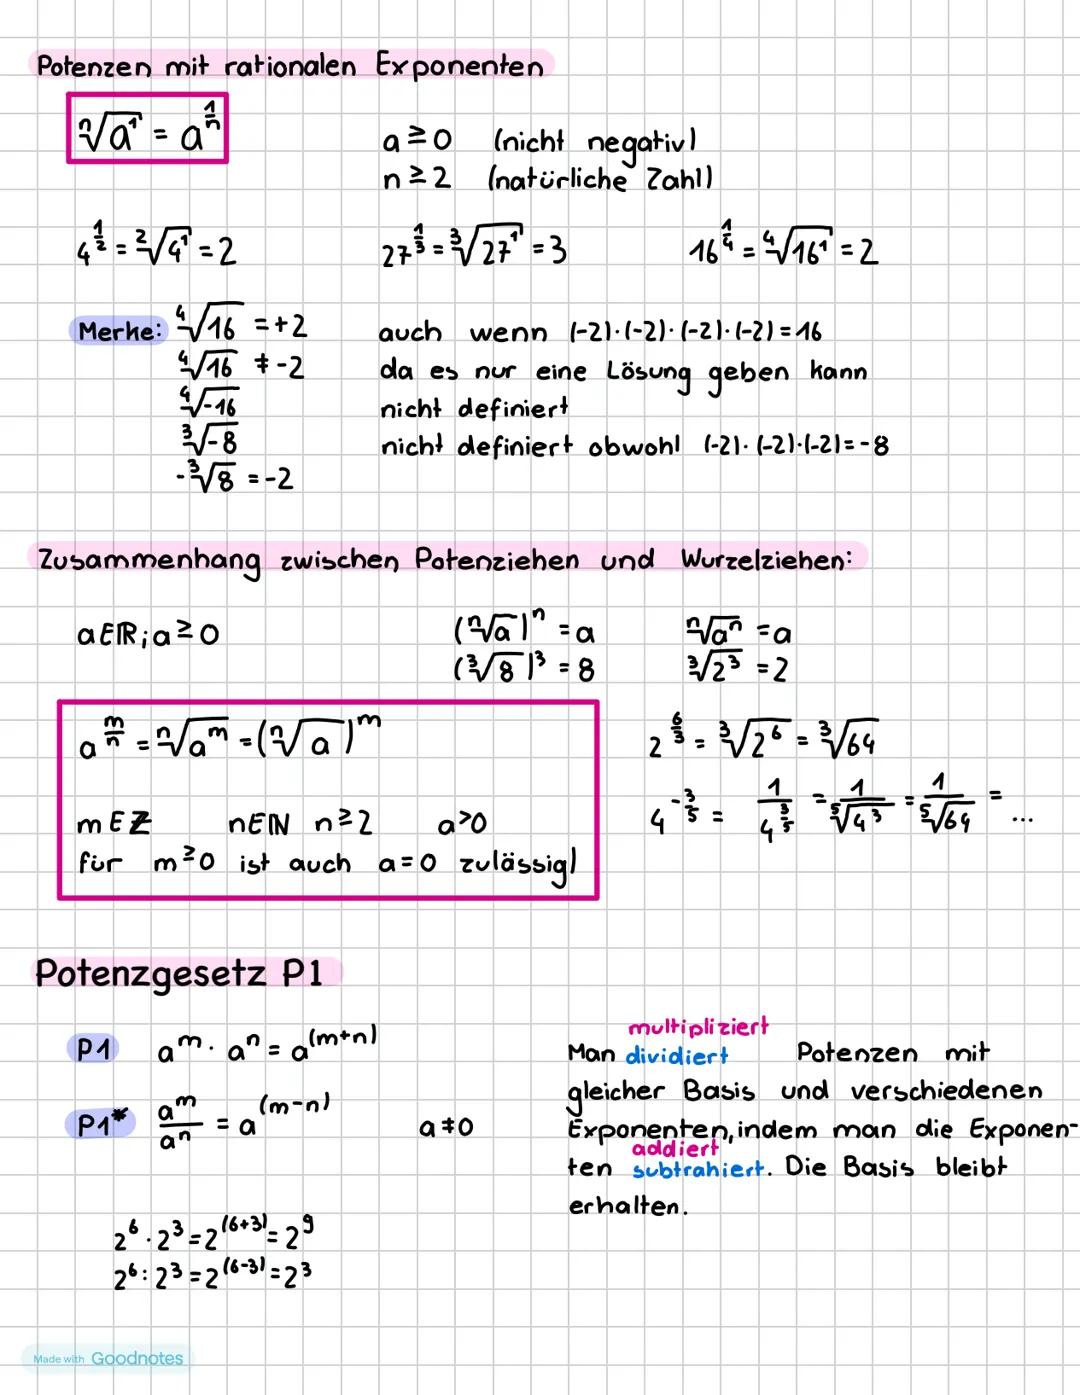 Potenzen mit rationalen Exponenten
ⁿ√a¹ = a^(1/n)
a ≥ 0 (nicht negativ)
n ≥ 2 (natürliche Zahl)
4^(1/2) = ²√4¹ = 2 27^(1/3) = ³√27¹ = 3 16^(1/4) = ⁴√16¹ = 2
Merke: ⁴√16 = +2 auch wenn (-2)·(-2)·(-2)·(-2) = 16
⁴√16 ≠ -2 da es nur eine Lösung geben kann
⁴√-16 nicht definiert
³√-8 nicht definiert obwohl (-2)·(-2)·(-2) = -8
-³√8 = -2
Zusammenhang zwischen Potenziehen und Wurzelziehen:
a ∈ ℝ; a ≥ 0 (ⁿ√a)ⁿ = a ⁿ√aⁿ = a
(³√8)³ = 8 ³√2³ = 2
a^(m/n) = ⁿ√a^m = (ⁿ√a)^m
2^(6/3) = ³√2⁶ = ³√64
m ∈ ℤ n ∈ ℕ n ≥ 2 a > 0
4^(-3/5) = 1/4^(3/5) = 1/⁵√4³ = 1/⁵√64 = ...
für m ≥ 0 ist auch a = 0 zulässig)
Potenzgesetz P1
P1 a^m · a^n = a^(m+n)
P1* a^m/a^n = a^(m-n) a ≠ 0
multipliziert
Man dividiert Potenzen mit
gleicher Basis und verschiedenen
Exponenten, indem man die Exponen-
addiert
ten subtrahiert. Die Basis bleibt
erhalten.
2⁶ · 2³ = 2^(6+3) = 2⁹
2⁶ : 2³ = 2^(6-3) = 2³
Made with Goodnotes